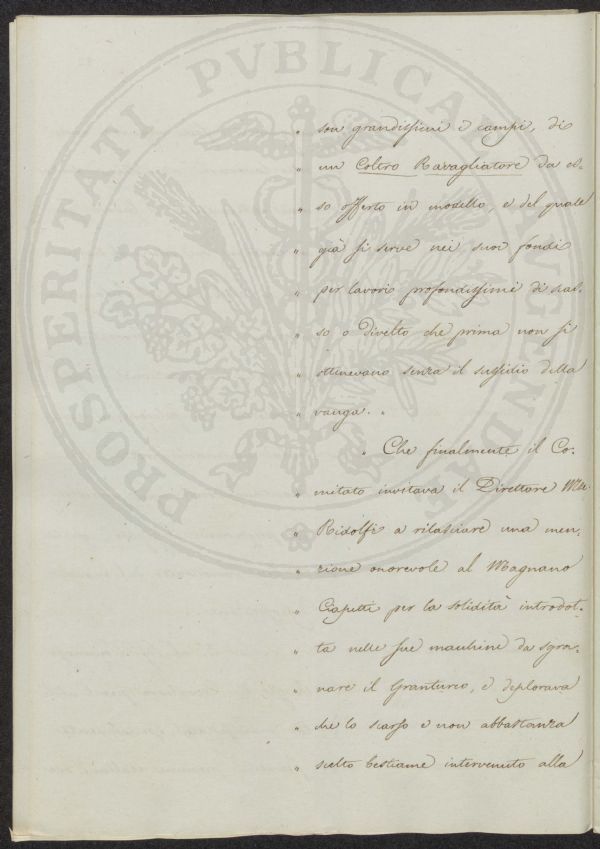 PROSPERITATI PVBLICAE AVGENDAE
" son grandissimi e campi, di
" un Coltro Ravagliatore da es-
" so offerto in modello, e del quale
" già si serve nei suoi fondi
" per lavori profondissimi di scas-
" so o divelto che prima non si
" ottenevano senza il sussidio della
" vanga. "
" Che finalmente il Co-
" mitato invitava il Direttore Mse.
" Ridolfi a rilasciare una men-
" zione onorevole al Magnano
" Ciapetti per la solidità introdot-
" ta nelle sue macchine da sgra-
" nare il Granturco, e deplorava
" che lo scarso e non abbastanza
" scelto bestiame intervenuto alla